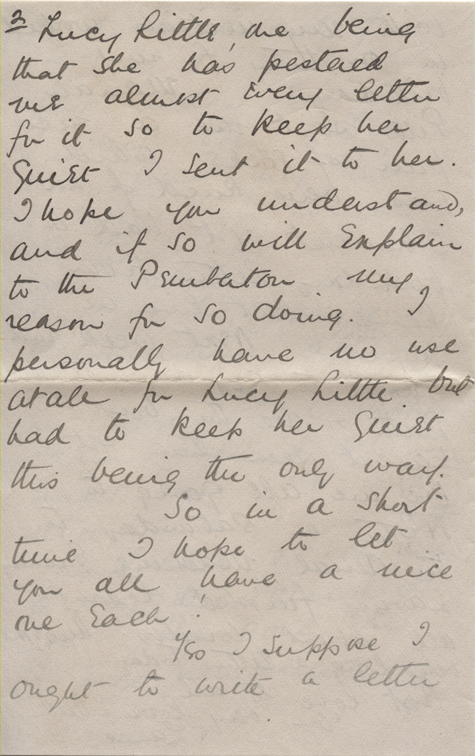 2
Lucy Little, one being
that she has pestered
me almost every letter
for it so to keep her
quiet I sent it to her.
I hope you understand,
and if so will Explain
to the Pembaton my
reason for so doing. I
personally have no use
atale for Lucy Little but
had to keep her quiet
this being the only way.
So in a short
time I hope to let
you all have a nice
one Each.
Yes I suppose I
ought to write a letter